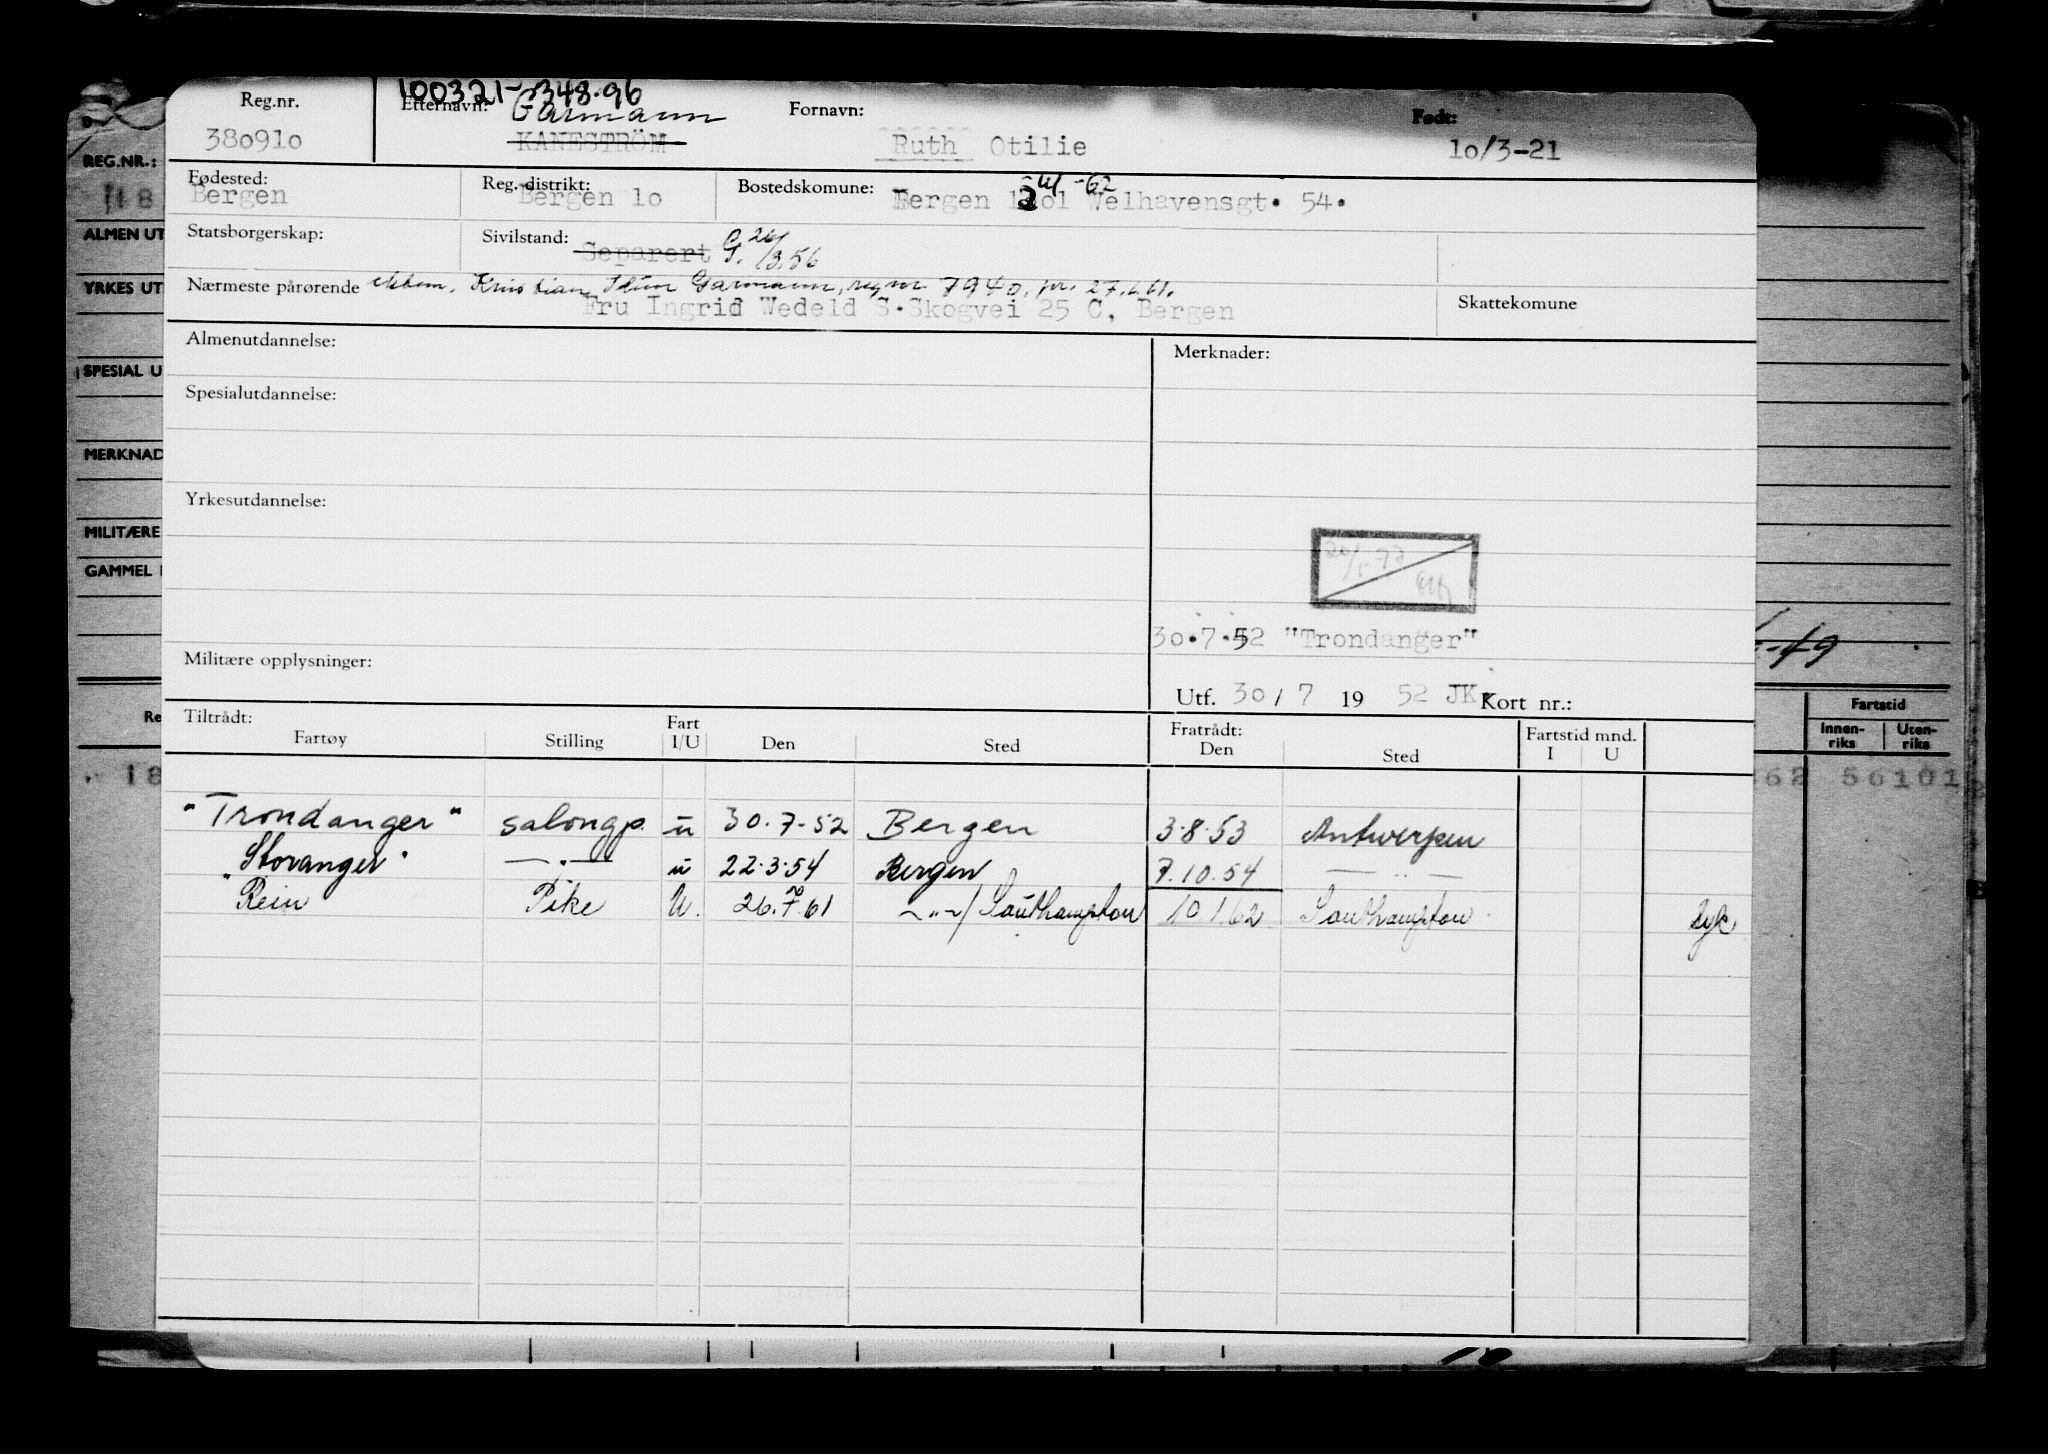 100321-348.96
Reg.nr. Etternavn: Garmann Fornavn: Født:
380910 KANESTRÖM Ruth Otilie 10/3-21
Fødested: Reg. distrikt: Bostedskomune:
Bergen Bergen 1o Bergen Welhavensgt. 54.
Statsborgerskap: Sivilstand: Separert G. 26/3.56
Nærmeste pårørende ektem. Kristian Garmann, reg nr 7940, 27.6.61.
Fru Ingrid Wedeld S.Skogvei 25 C, Bergen Skattekomune
Almenutdannelse: Merknader:
Spesialutdannelse:
Yrkesutdannelse:
30.7.52 "Trondanger"
Militære opplysninger:
Utf. 30/7 19 52 JK. Kort nr.:
Tiltrådt: Fratrådt: Fartstid mnd.
Fartøy Stilling Fart I/U Den Sted Den Sted I U
"Trondanger" salongp. u 30.7-52 Bergen 3.8.53 Antwerpen
"Storanger" —"— u 22.3.54 Bergen 7.10.54 —"—
Rein Pike U. 26.7.61 —"—/Southampton 10.1.62 Southampton
REG.NR.:
18
ALMEN UT
YRKES UT
SPESIAL U
MERKNAD
MILITÆRE
GAMMEL
Re
18
-49
Fartstid
Innen-riks Uten-riks
62 56101